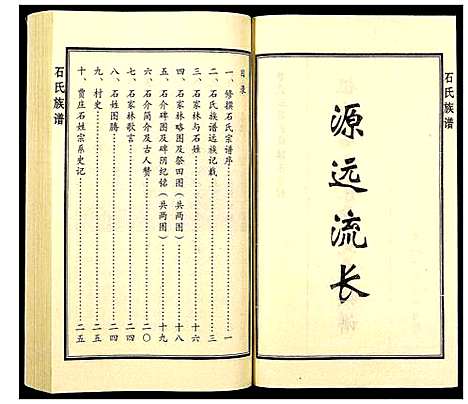 石氏族谱
源远流长
目录
一、修撰石氏宗谱序……一
二、石氏族谱远族记载……三
三、石家林与石姓……十六
四、石家林略图及祭四图(共两图)……十八
五、石介碑图及碑阴纪铭(共两图)……十九
六、石介简介及古人赞……二〇
七、石家林歌言……二四
八、石姓图腾……二四
九、村史……二五
十、贾庄石姓宗系史记……二五
石氏族谱